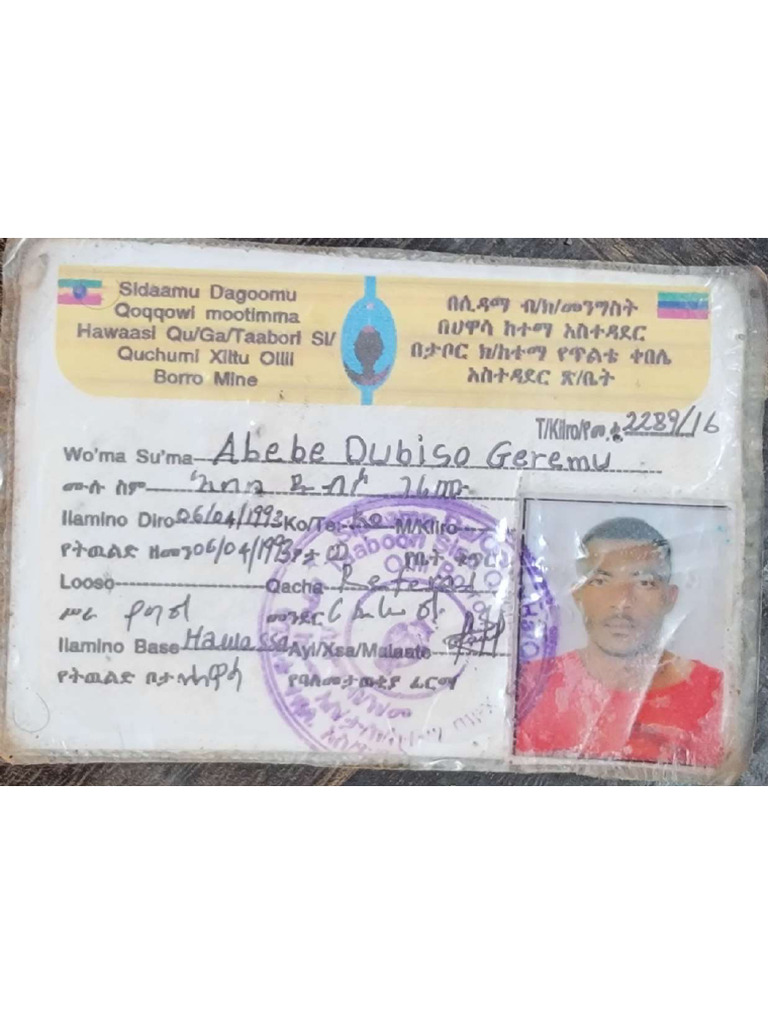 Sidaamu Dagoomu
Qoqqowi mootimma
Hawaasi Qu/Ga/Taabori Sl/
Quchumi Xiltu Ollii
Borro Mine
በሲዳማ ብ/ክ/መንግስት
በሀዋሳ ከተማ አስተዳደር
በታቦር ክ/ከተማ የጥልቴ ቀበሌ
አስተዳደር ጽ/ቤት
T/Kiiro/የመ.ቁ 2289/16
Wo'ma Su'ma Abebe Dubiso Geremu
ሙሉ ስም አበበ ዱብሶ ገረሙ
Ilamino Diro 06/04/1993 Ko/Te: M/Kiiro
የትዉልድ ዘመን 06/04/1993 የቤት ቁጥር
Looso Qacha Referal
ሥራ የግል መንደር ሪፈራል
Ilamino Base Hawassa Ayi/Xsa/Malaate
የትዉልድ ቦታ ሀዋሳ የባለመታወቂያ ፊርማ